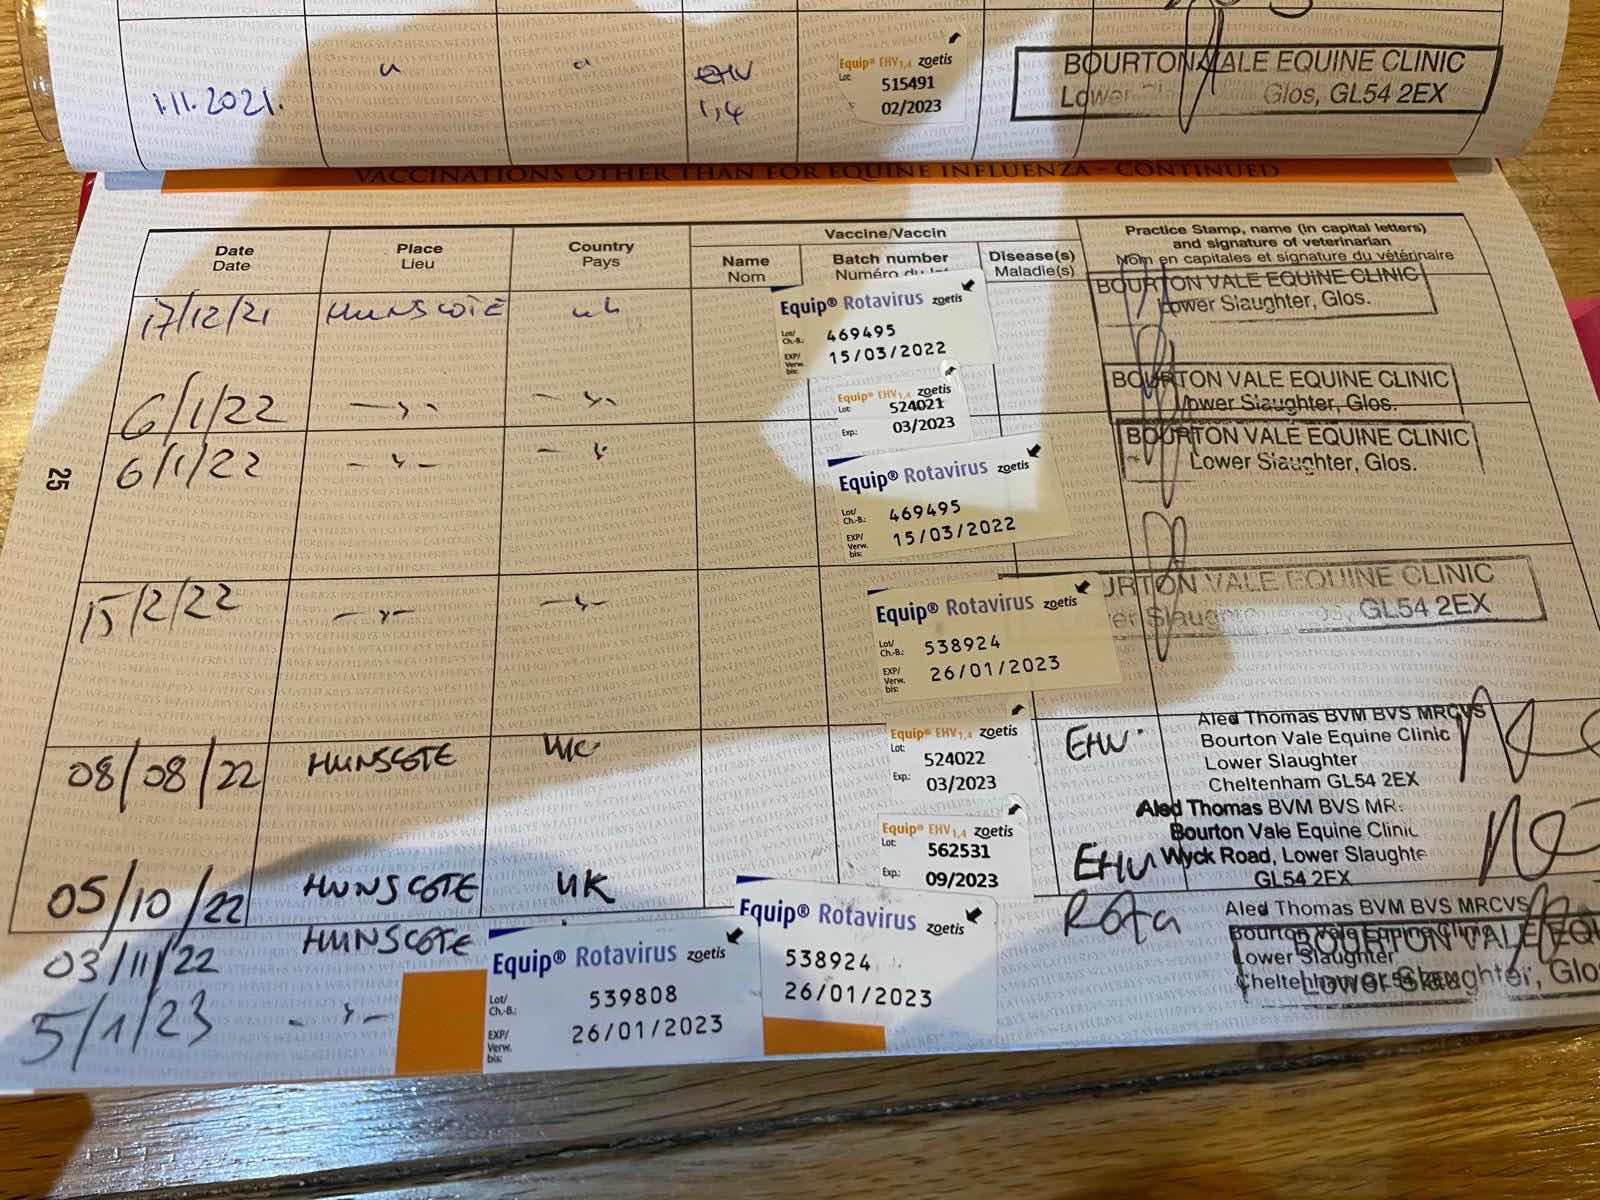 1.11.2021. " " EHV 1,4
Equip® EHV1,4 zoetis
Lot: 515491
02/2023
BOURTON VALE EQUINE CLINIC
Lower Glos, GL54 2EX
VACCINATIONS OTHER THAN FOR EQUINE INFLUENZA - CONTINUED
Date Date
Place Lieu
Country Pays
Vaccine/Vaccin
Name Nom
Batch number Numéro du lot
Disease(s) Maladie(s)
Practice Stamp, name (in capital letters)
and signature of veterinarian
Nom en capitales et signature du vétérinaire
17/12/21 HUNSCOTE uk
Equip® Rotavirus zoetis
Lot/ Ch.-B.: 469495
EXP/ Verw. bis: 15/03/2022
BOURTON VALE EQUINE CLINIC
Lower Slaughter, Glos.
6/1/22 -"- -"-
Equip® EHV1,4 zoetis
Lot: 524021
Exp.: 03/2023
BOURTON VALE EQUINE CLINIC
Lower Slaughter, Glos.
6/1/22 -"- -"-
Equip® Rotavirus zoetis
Lot/ Ch.-B.: 469495
EXP/ Verw. bis: 15/03/2022
BOURTON VALE EQUINE CLINIC
Lower Slaughter, Glos.
25
15/2/22 -"- -"-
Equip® Rotavirus zoetis
Lot/ Ch.-B.: 538924
EXP/ Verw. bis: 26/01/2023
URTON VALE EQUINE CLINIC
er Slaughter GL54 2EX
08/08/22 HUNSCOTE UK
Equip® EHV1,4 zoetis
Lot: 524022
Exp.: 03/2023
EHV
Aled Thomas BVM BVS MRCVS
Bourton Vale Equine Clinic
Lower Slaughter
Cheltenham GL54 2EX
05/10/22 HUNSCOTE UK
Equip® EHV1,4 zoetis
Lot: 562531
Exp.: 09/2023
EHV
Aled Thomas BVM BVS MR
Bourton Vale Equine Clinic
Wyck Road, Lower Slaughte
GL54 2EX
03/11/22 HUNSCOTE
Equip® Rotavirus zoetis
538924
26/01/2023
Rota
Aled Thomas BVM BVS MRCVS
Bourton Vale Equine Clinic
Lower Slaughter
Cheltenham GL54 2EX
5/1/23 -"-
Equip® Rotavirus zoetis
Lot/ Ch.-B.: 539808
EXP/ Verw. bis: 26/01/2023
BOURTON VALE EQU
Lower Slaughter, Glos